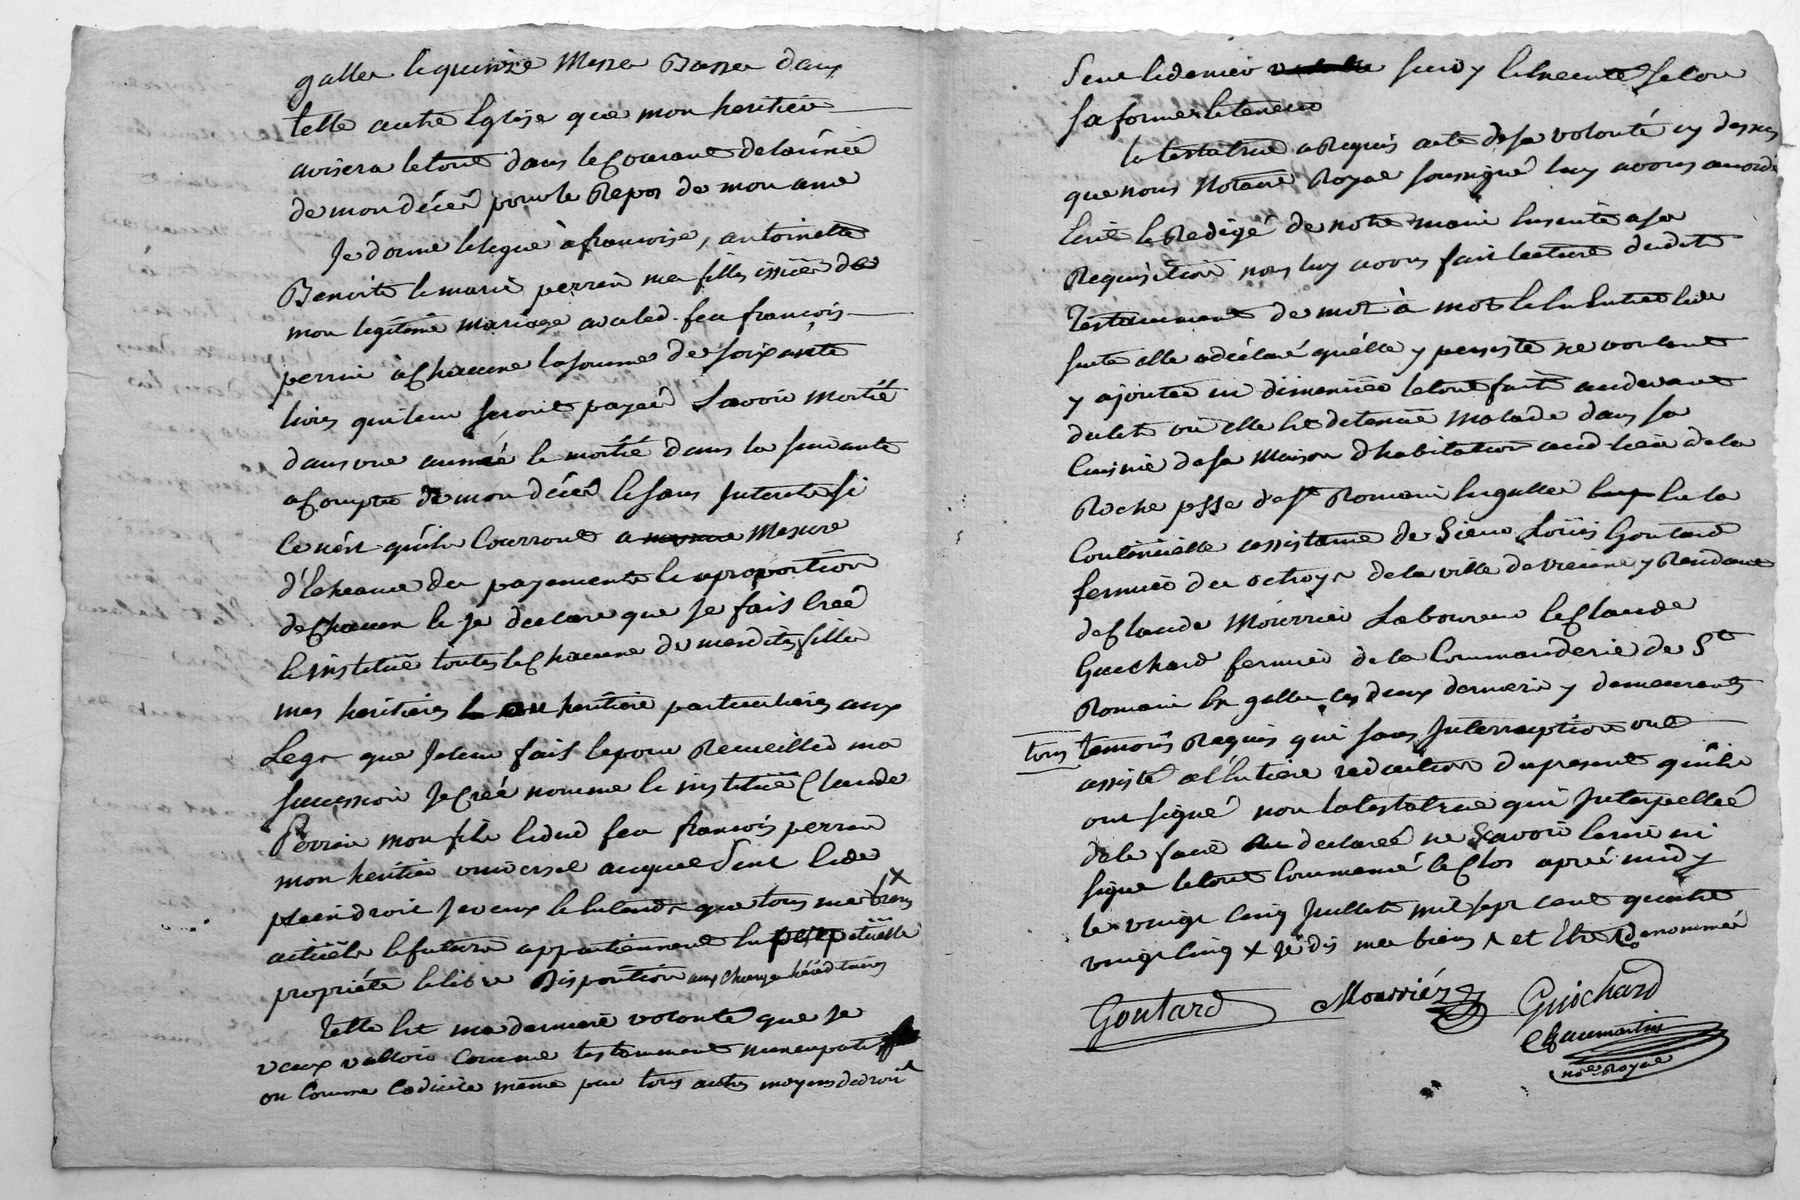 galle et quinze Messes Basses dans
telle autre Eglise que mon heritier
avisera le tout dans le Courant de l'année
de mon décés pour le Repos de mon ame
Je donne et legue à françoise, antoinette
Benoite et marie perrin mes filles issües de
mon legitime mariage avec led. feu françois
perrin a Chacune la somme de soixante
livres qui leur seront payées Savoir moitié
dans une année et moitié dans la suivante
a Compter de mon décés et sans Interets si
ce n'est qu'ils Courront a Mesure
d'Echeance des payements et a proportion
de Chacun et je declare que Je fais Creé
et institüe toutes et Chacune de mesdites filles
mes heritieres heritiere particulieres aux
Legs que Je leur fais et pour Recueillir ma
succession Je Creé nomme et institüe Claude
Perrin mon fils et dud feu françois perrin
mon heritier universel auquel seul et de
plein droit Je veux et entends que tous mes biens X
actüels et futurs appartiennent en perpetüelle
propriété et libre Disposition aux charges hereditaires
Telle est ma derniere volonté que Je
veux valloir Comme testamment nuncupatif
ou Comme Codicile même par tous autres moyens de droit
sera suivy et Executé selon
sa forme et teneur
la testatrice a Requis acte de sa volonté cy dessus
que nous Notaire Royal soussigné luy avons accordé
Ecrit et Redigé de notre main Ensuite a sa
Requisition nous luy avons fait lecture dudit
Testamment de mot à mot et en Entier et de
suite elle a déclaré qu'elle y persiste ne voulant
y ajouter ni dimenüer le tout fait audevant
du lit où elle est detenüe malade dans la
Cuisine de sa Maison d'habitation aud lieu de la
Roche psse de St Romain en galle et la
Continüelle assistance de Sieur Loüis Goutard
fermier des octroys de la ville de vienne y Residant
de Claude Mourrier Laboureur et Claude
Guichard fermier de la Commanderie de St
Romain En galle ces deux derniers y demeurants
tous temoins Requis qui sans Interruption ont
assisté a l'Entiere redaction du present qu'ils
ont signé non la testatrice qui Interpellée
de le faire a declaré ne Savoir Ecrire ni
signer le tout Commencé et Clos aprés midy
le vingt Cinq Juillet mil sept cent quatre
vingt Cinq X Je dis mes biens et Etre denommé
Goutard Mourriér Guichard
Chaumartin
nore Royal